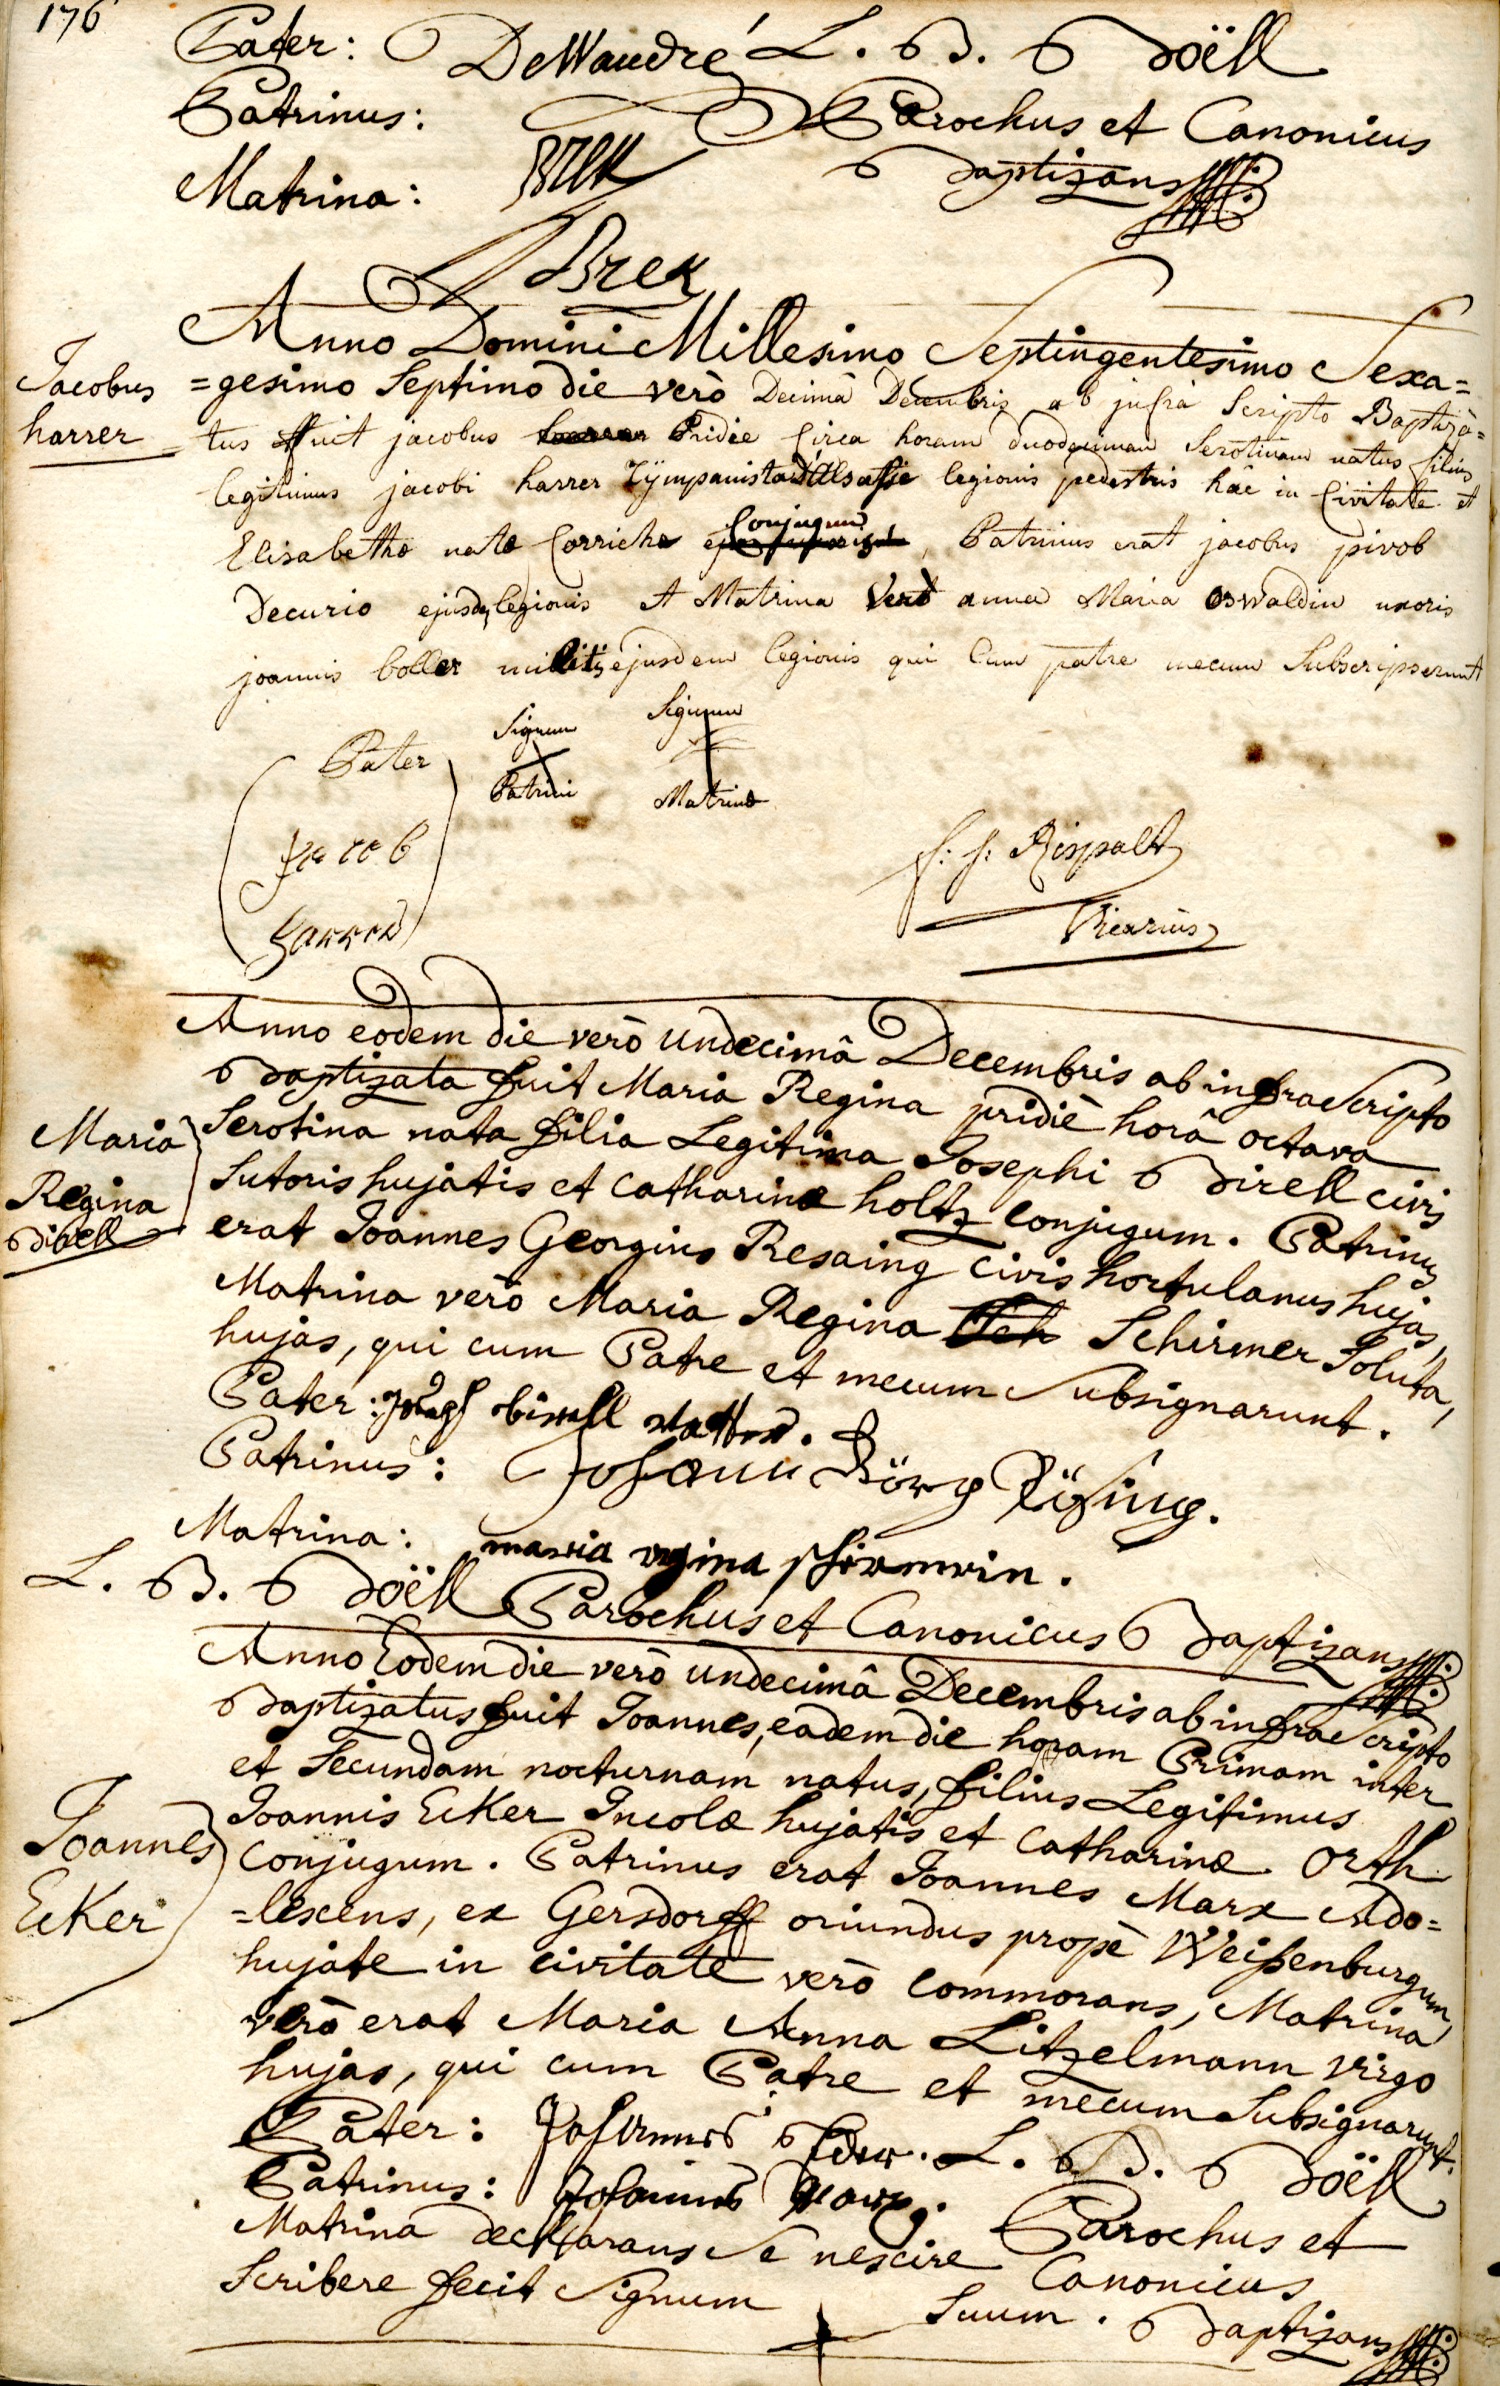 176
Pater: DeWaudré L. B. Boëll
Patrinus: Parochus et Canonicus
Baptizans
Matrina: Brek
Anno Domini Millesimo Septingentesimo Sexa=
Jacobus
harrer
=gesimo Septimo die verò Decimâ Decembris ab jnfrà Scripto Baptizà=
tus ffuit jacobus pridie Circa horam duodecimam Serotinam natus filius
legitimus jacobi harrer Tÿmpanista D'Alsasse legionis pedestris hâc in Civitate et
Elisabethæ natæ Corriche Conjugum, Patrinus erat jacobus pivob
Decurio ejusdem legionis et Matrina Verò anna Maria oswaldin uxoris
joannis boller militis ejusdem legionis qui Cum patre mecum Subscripserunt
Pater
Jacob
harrer
Signum
Patrini
Signum
Matrinæ
f: j: Rispalt
Vicarius
Anno eodem die verò undecimâ Decembris ab infraScripto
Baptizata fuit Maria Regina pridiè horâ octava
Maria
Regina
Birell
Serotina nata filia Legitima Josephi Birell civis
Sutoris hujatis et Catharinæ holtz conjugum. Patrinus
erat Joannes Georgius Resaing civis hortulanus hujas,
Matrina verò Maria Regina Sch Schirmer Soluta,
hujas, qui cum Patre et mecum Subsignarunt.
Pater: Joseph birell vatter.
Patrinus: Johann Görg Rösing.
Matrina: maria regina schirmerin.
L. B. Boëll Parochus et Canonicus Baptizans
Anno Eodem die verò undecimâ Decembris ab infraScripto
Baptizatus fuit Joannes, eadem die horam Primam inter
et Secundam nocturnam natus, filius Legitimus
Joannes
Ecker
Joannis Ecker Incolæ hujatis et Catharinæ Orth
Conjugum. Patrinus erat Joannes Marx Ado=
=lescens, ex Gersdorff oriundus propè Weißenburgum,
hujate in civitate verò commorans, Matrina
verò erat Maria Anna Litzelmann virgo
hujas, qui cum Patre et mecum Subsignarunt.
Pater: Johannes Ecker. L. B. Boëll
Patrinus: Johannes Marx. Parochus et
Matrina decklarans Se nescire Canonicus
Scribere fecit Signum Suum. Baptizans